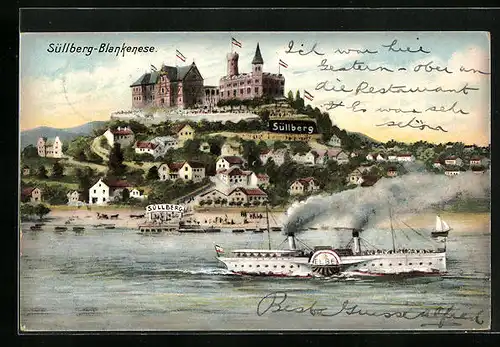 Süllberg-Blankenese.
Ich war hier
Gestern - ober an
die Restaurant
Es war sehr
schön
Süllberg
SÜLLBERG
ELBE
Beste